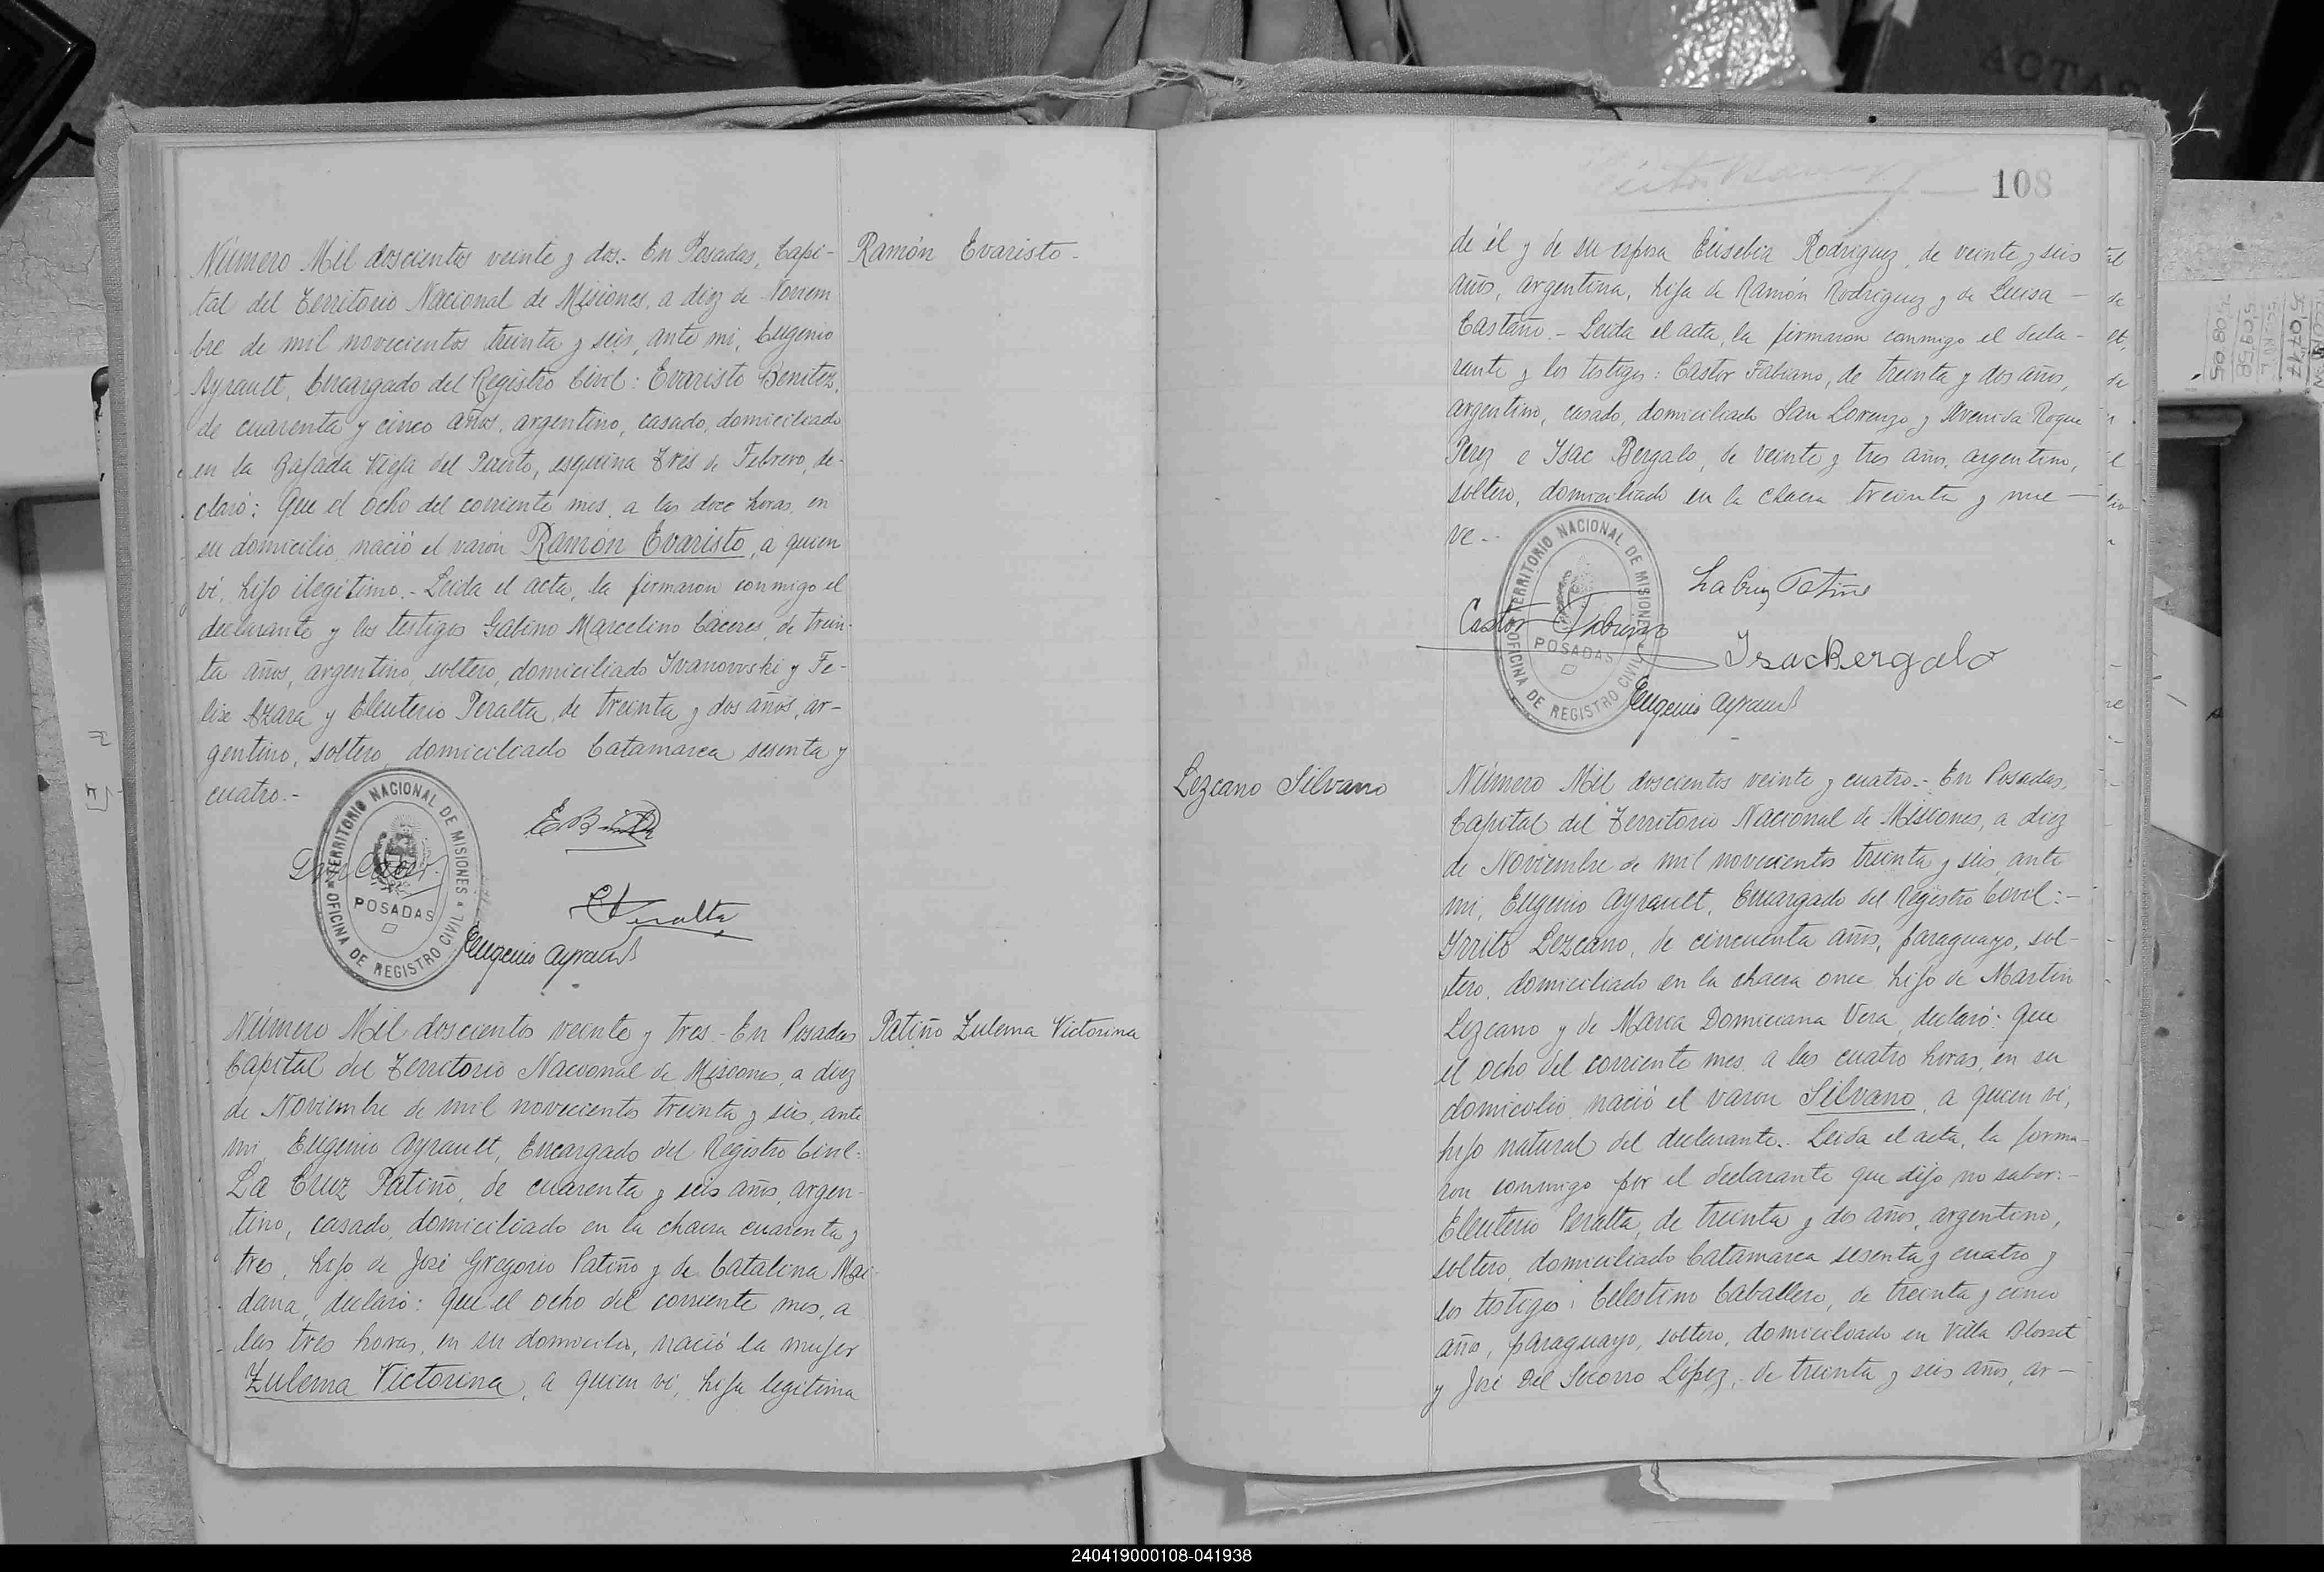 Número Mil doscientos veinte y dos.- En Posadas, Capi-
tal del Territorio Nacional de Misiones, a diez de Noviem
bre de mil novecientos treinta y seis, ante mi, Eugenio
Ayrault, Encargado del Registro Civil: Evaristo Benitez,
de cuarenta y cinco años, argentino, casado, domiciliado
en la Bajada Vieja del Puerto, esquina Tres de Febrero, de-
claró: Que el ocho del corriente mes, a las doce horas, en
su domicilio, nació el varón Ramón Evaristo, a quien
vi, hijo ilegitimo.- Leida el acta, la firmaron conmigo el
declarante y los testigos Gabino Marcelino Cáceres, de trein-
ta años, argentino, soltero, domiciliado Ivanowski y Fe-
lix Azara y Eleuterio Peralta, de treinta y dos años, ar-
gentino, soltero, domiciliado Catamarca sesenta y
cuatro.-
Ramón Evaristo-
TERRITORIO NACIONAL DE MISIONES
POSADAS
OFICINA DE REGISTRO CIVIL
E Peralta
Eugenio Ayrault
Número Mil doscientos veinte y tres.- En Posadas
Capital del Territorio Nacional de Misiones, a diez
de Noviembre de mil novecientos treinta y seis, ante
mi, Eugenio Ayrault, Encargado del Registro Civil:
La Cruz Patiño, de cuarenta y seis años, argen-
tino, casado, domiciliado en la chacra cuarenta y
tres, hijo de José Gregorio Patiño y de Catalina Mai-
dana, declaró: Que el ocho del corriente mes, a
las tres horas, en su domicilio, nació la mujer
Zulema Victorina, a quien vi, hija legitima
Patiño Zulema Victorina
108
de él y de su esposa Eusebia Rodriguez, de veinte y seis
años, argentina, hija de Ramón Rodriguez y de Luisa -
Castaño.- Leida el acta, la firmaron conmigo el decla-
rante y los testigos: Castor Fabiano, de treinta y dos años,
argentino, casado, domiciliado San Lorenzo y Avenida Roque
Perez e Isac Bergalo, de veinte y tres años, argentino,
soltero, domiciliado en la chacra treinta y nue-
ve.-
TERRITORIO NACIONAL DE MISIONES
POSADAS
OFICINA DE REGISTRO CIVIL
La Cruz Patiño
Castor Fabiano
Isac Bergalo
Eugenio Ayrault
Lezcano Silvano
Número Mil doscientos veinte y cuatro.- En Posadas,
Capital del Territorio Nacional de Misiones, a diez
de Noviembre de mil novecientos treinta y seis, ante
mi, Eugenio Ayrault, Encargado del Registro Civil:-
Lezcano, de cincuenta años, paraguayo, sol-
tero, domiciliado en la chacra once, hijo de Martin
Lezcano y de Maria Domiciana Vera, declaró: Que
el ocho del corriente mes, a las cuatro horas, en su
domicilio, nació el varon Silvano, a quien vi,
hijo natural del declarante.- Leida el acta, la firma-
ron conmigo por el declarante que dijo no saber:-
Eleuterio Peralta, de treinta y dos años, argentino,
soltero, domiciliado Catamarca sesenta y cuatro y
los testigos: Celestino Caballero, de treinta y cinco
años, paraguayo, soltero, domiciliado en Villa Blosset
y José Del Socorro López, de treinta y seis años, ar-
240419000108-041938